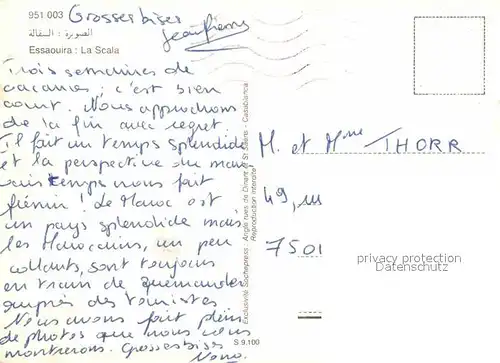 951 003 Grosses bises
Jean Pierre
الصويرة : السقالة
Essaouira : La Scala
Trois semaines de
vacances ; c'est bien
court. Nous approchons
de la fin avec regret.
Il fait un temps splendide
et la perspective du mauvais temps nous fait
frémir ! Le Maroc est
un pays splendide mais
les Marocains, un peu
collants, sont toujours
en train de quémander
auprès des touristes.
Nous avons fait plein
de photos que nous vous
montrerons. Grosses bises
Exclusivité Sochepress - Angle rues de Dinant et St Saëns - Casablanca
Reproduction interdite
S 9.100
M. et Mme THORR
49,
7501
privacy protection
Datenschutz